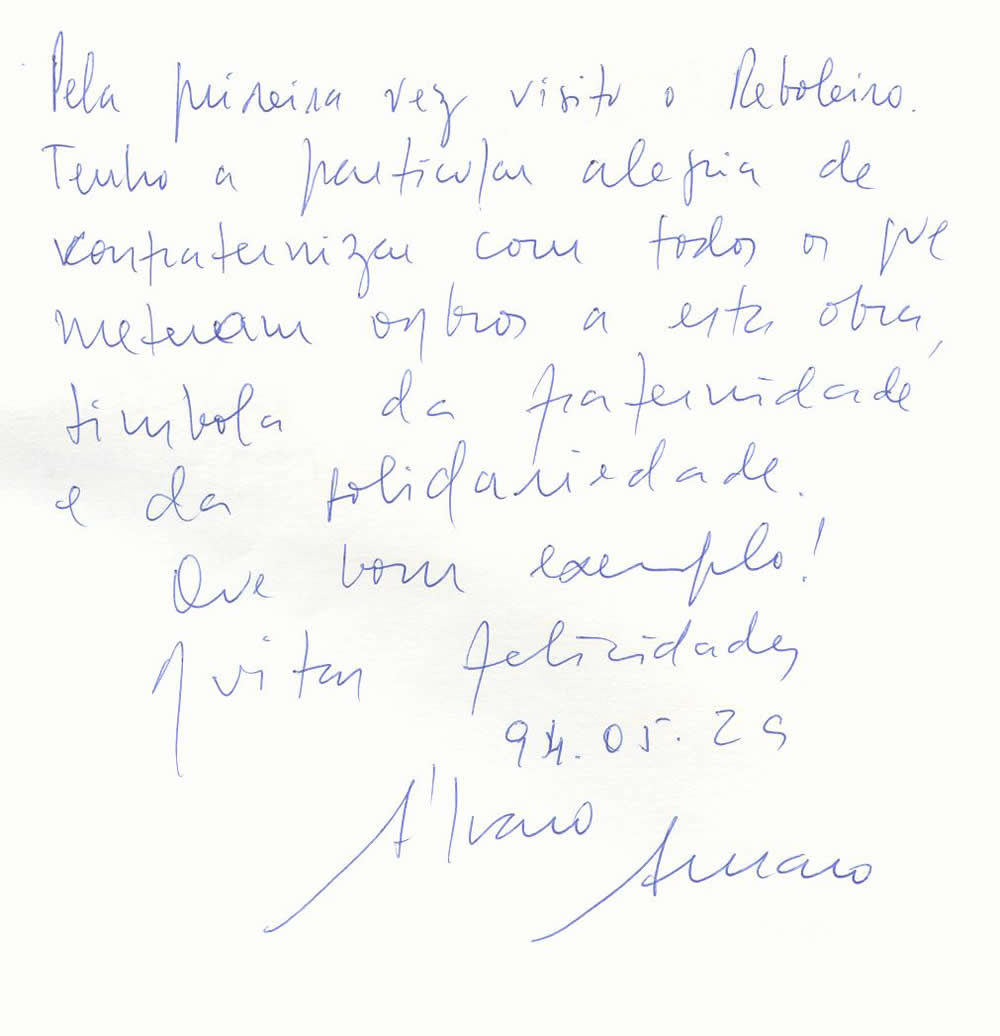 Pela primeira vez visito o Reboleiro.
Tenho a particular alegria de
confraternizar com todos os que
meteram ombros a esta obra,
símbolo da fraternidade
e da solidariedade.
Que bom exemplo!
Muitas felicidades
94.05.29
Álvaro Amaro